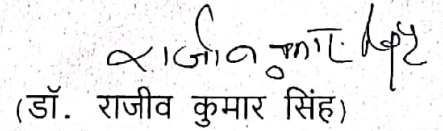 राजीव कुमार सिंह
(डॉ. राजीव कुमार सिंह)